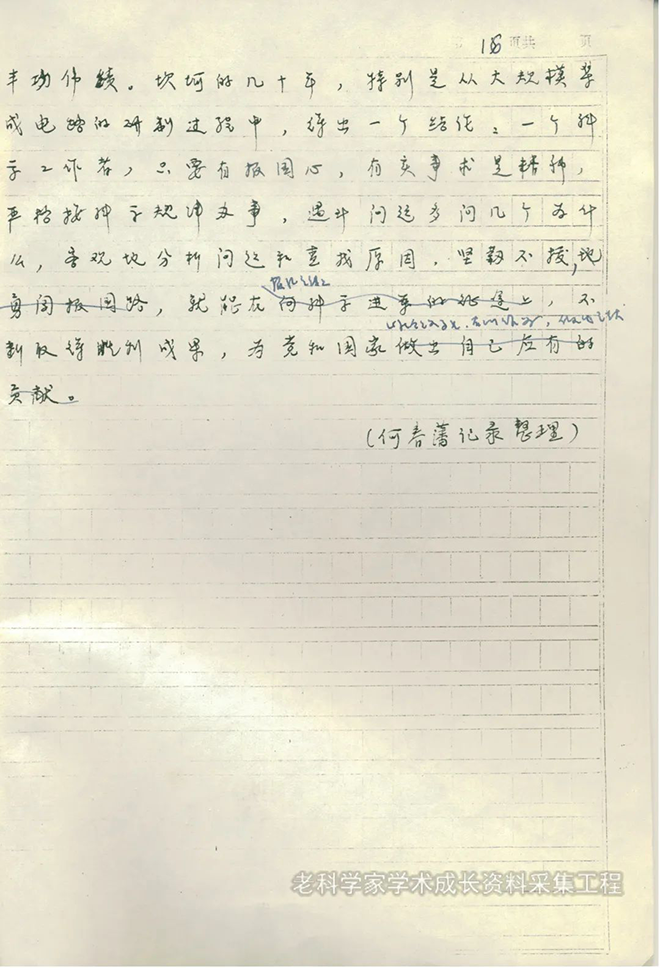 18 页共 页
丰功伟绩。坎坷的几十年，特别是从大规模集
成电路的研制过程中，得出一个结论：一个科
学工作者，只要有报国心，有实事求是精神，
严格按科学规律办事，遇斗问题多问几个为什
么，客观地分析问题和查找原因，坚韧不拔地
勇闯报国路，就能在向科学进军的征途上，不
断取得胜利成果，为党和国家做出自己应有的
贡献。
（何春藩记录整理）
老科学家学术成长资料采集工程